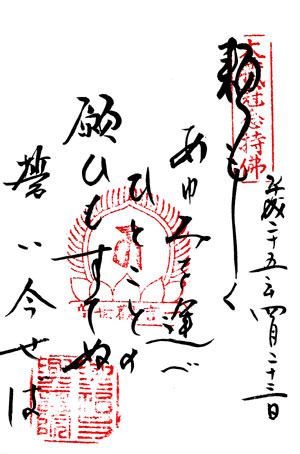 大織冠念持佛
平成二十五年四月二十三日
頼もしく
あゆみを運べ
ひとことの
願ひもすてぬ
誓い今せば